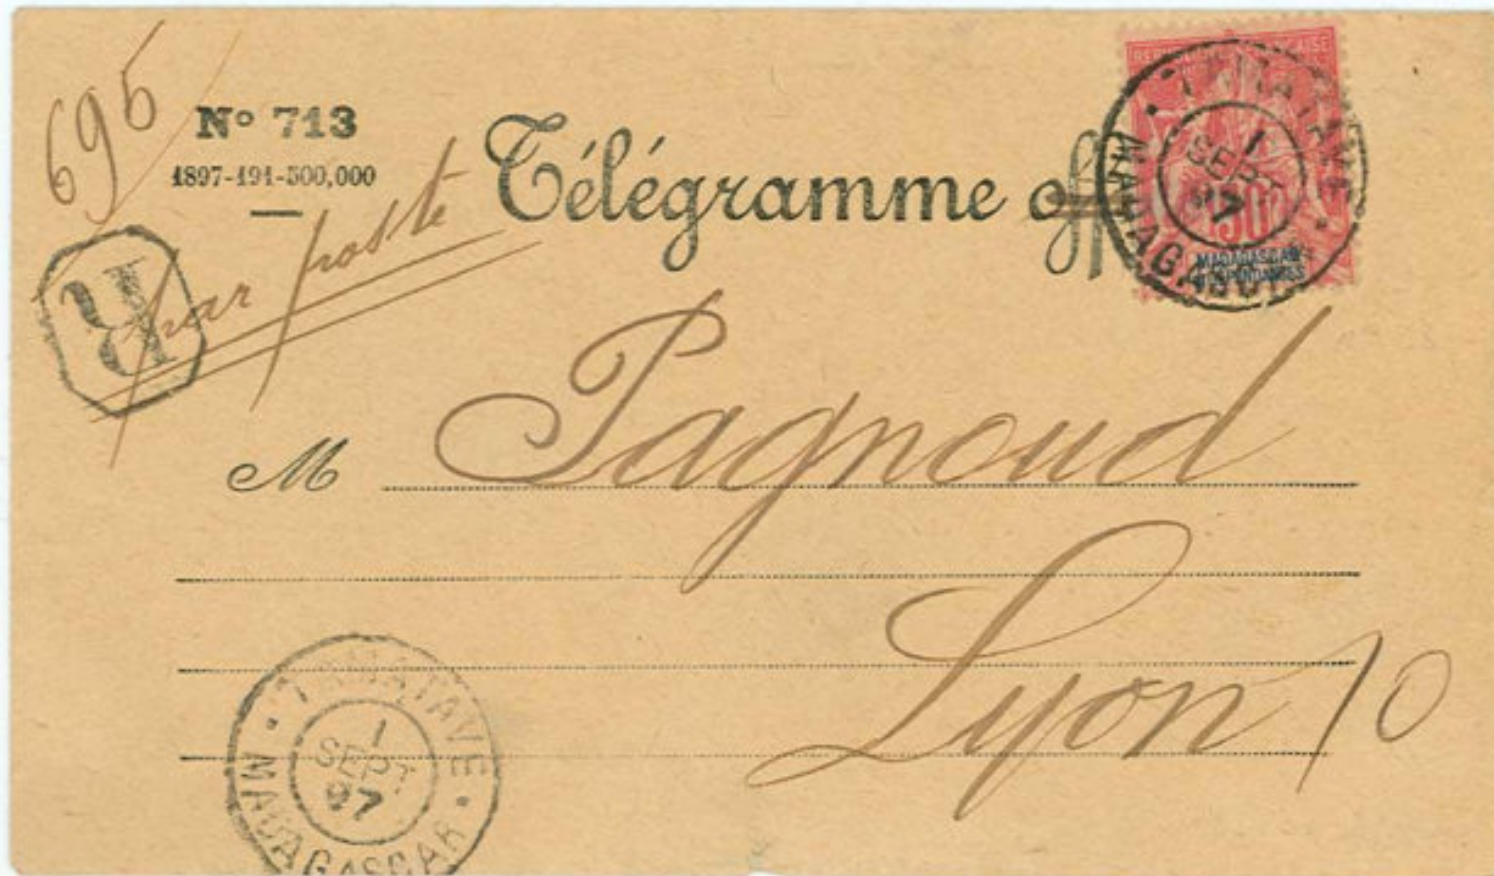 695
N° 713
1897-191-500,000
par poste
R
Télégramme off
RÉPUBLIQUE FRANÇAISE
50
MADAGASCAR
ET DÉPENDANCES
TAMATAVE
1
SEPT
97
MADAGASCAR
M Pagnoud
Lyon 10
TAMATAVE
1
SEPT
97
MADAGASCAR